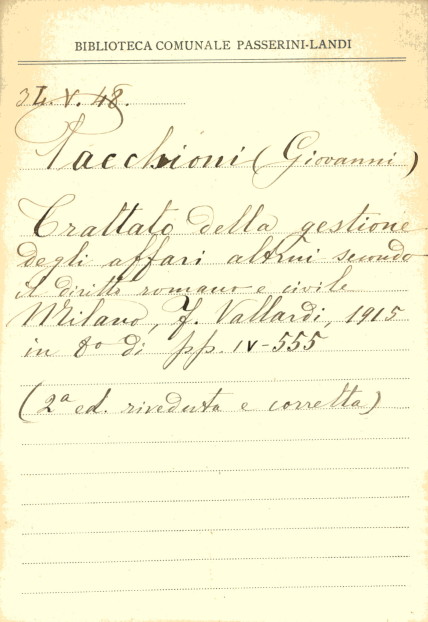 BIBLIOTECA COMUNALE PASSERINI-LANDI
3L.V.48.
Pacchioni (Giovanni)
Trattato della gestione
degli affari altrui secondo
il diritto romano e civile
Milano, F. Vallardi, 1915
in 8º di pp. IV-555
(2ª ed. riveduta e corretta)